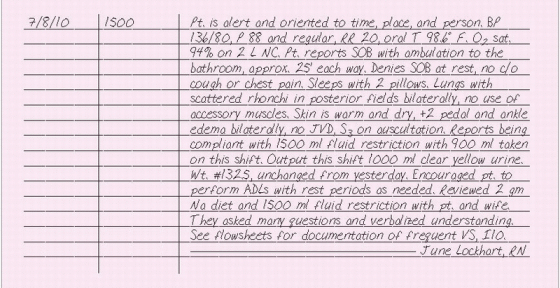 7/8/10 1500 Pt. is alert and oriented to time, place, and person. BP
136/80, P 88 and regular, RR 20, oral T 98.6° F. O₂ sat.
94% on 2 L NC. Pt. reports SOB with ambulation to the
bathroom, approx. 25' each way. Denies SOB at rest, no c/o
cough or chest pain. Sleeps with 2 pillows. Lungs with
scattered rhonchi in posterior fields bilaterally, no use of
accessory muscles. Skin is warm and dry, +2 pedal and ankle
edema bilaterally, no JVD, S₃ on auscultation. Reports being
compliant with 1500 ml fluid restriction with 900 ml taken
on this shift. Output this shift 1000 ml clear yellow urine.
Wt. #132.5, unchanged from yesterday. Encouraged pt. to
perform ADLs with rest periods as needed. Reviewed 2 gm
Na diet and 1500 ml fluid restriction with pt. and wife.
They asked many questions and verbalized understanding.
See flowsheets for documentation of frequent VS, I10.
June Lockhart, RN